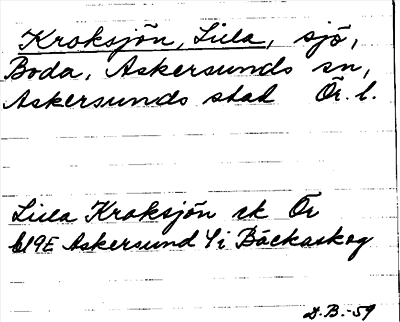 Kroksjön, Lilla, sjö,
Boda, Askersunds sn,
Askersunds stad Ör. l.
Lilla Kroksjön rk Ör
bl9E Askersund 4i Bäckaskog
D.B.-59